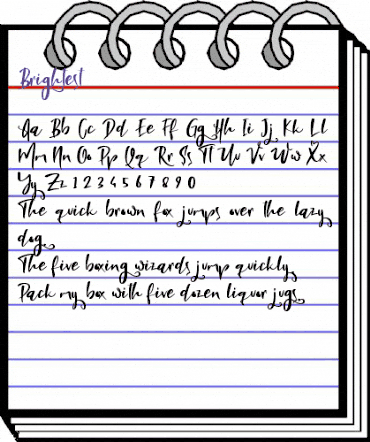 Brightest
Aa Bb Cc Dd Ee Ff Gg Hh Ii Jj Kk Ll
Mm Nn Oo Pp Qq Rr Ss Tt Uu Vv Ww Xx
Yy Zz 1 2 3 4 5 6 7 8 9 0
The quick brown fox jumps over the lazy
dog.
The five boxing wizards jump quickly.
Pack my box with five dozen liquor jugs.